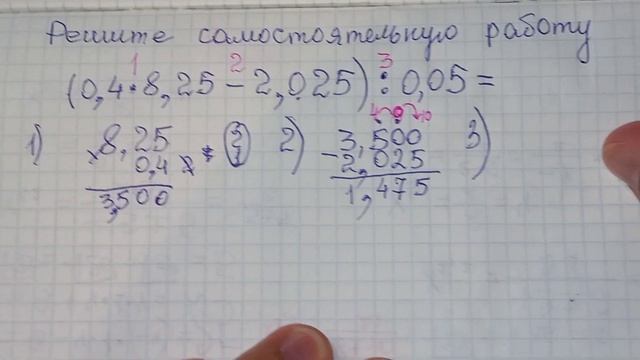 Решите самостоятельную работу
1 2 3
(0,4·8,25-2,025):0,05=
1) 2) 3)
×8,25 3,500
0,4 -2,025
3,500 1,475